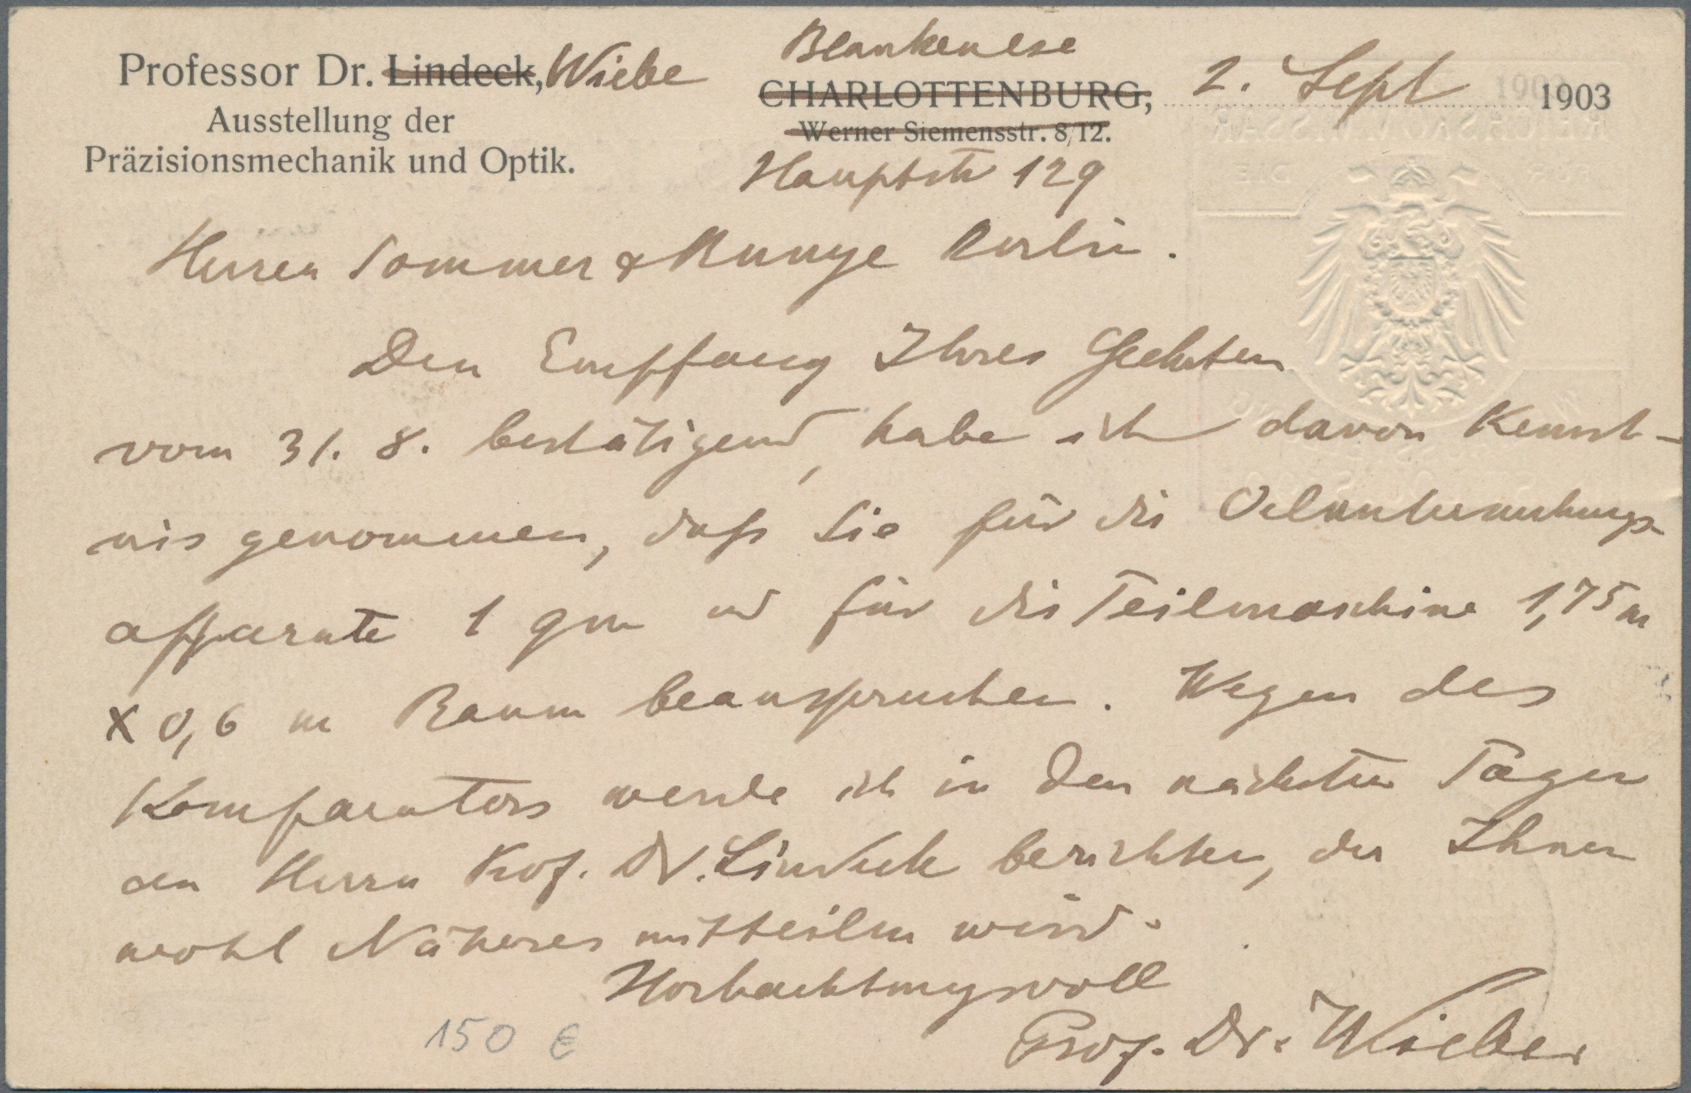 Professor Dr. Lindeck, Wiebe
Ausstellung der
Präzisionsmechanik und Optik.
Blankenese
CHARLOTTENBURG, 2. Sept 1903
Werner Siemensstr. 8/12.
Hauptstr 129
Herren Sommer & Runge Berlin.
Den Empfang Ihres Geehrten
vom 31. 8. bestätigend, habe ich davon Kennt-
nis genommen, daß Sie für die Oeluntersuchungs-
apparate 1 qm und für die Teilmaschine 1,75 m
X 0,6 m Raum beanspruchen. Wegen des
Komparators werde ich in den nächsten Tagen
an Herrn Prof. Dr. Lindeck berichten, der Ihnen
wohl Näheres mitteilen wird.
Hochachtungsvoll
Prof. Dr. Wiebe
150 €